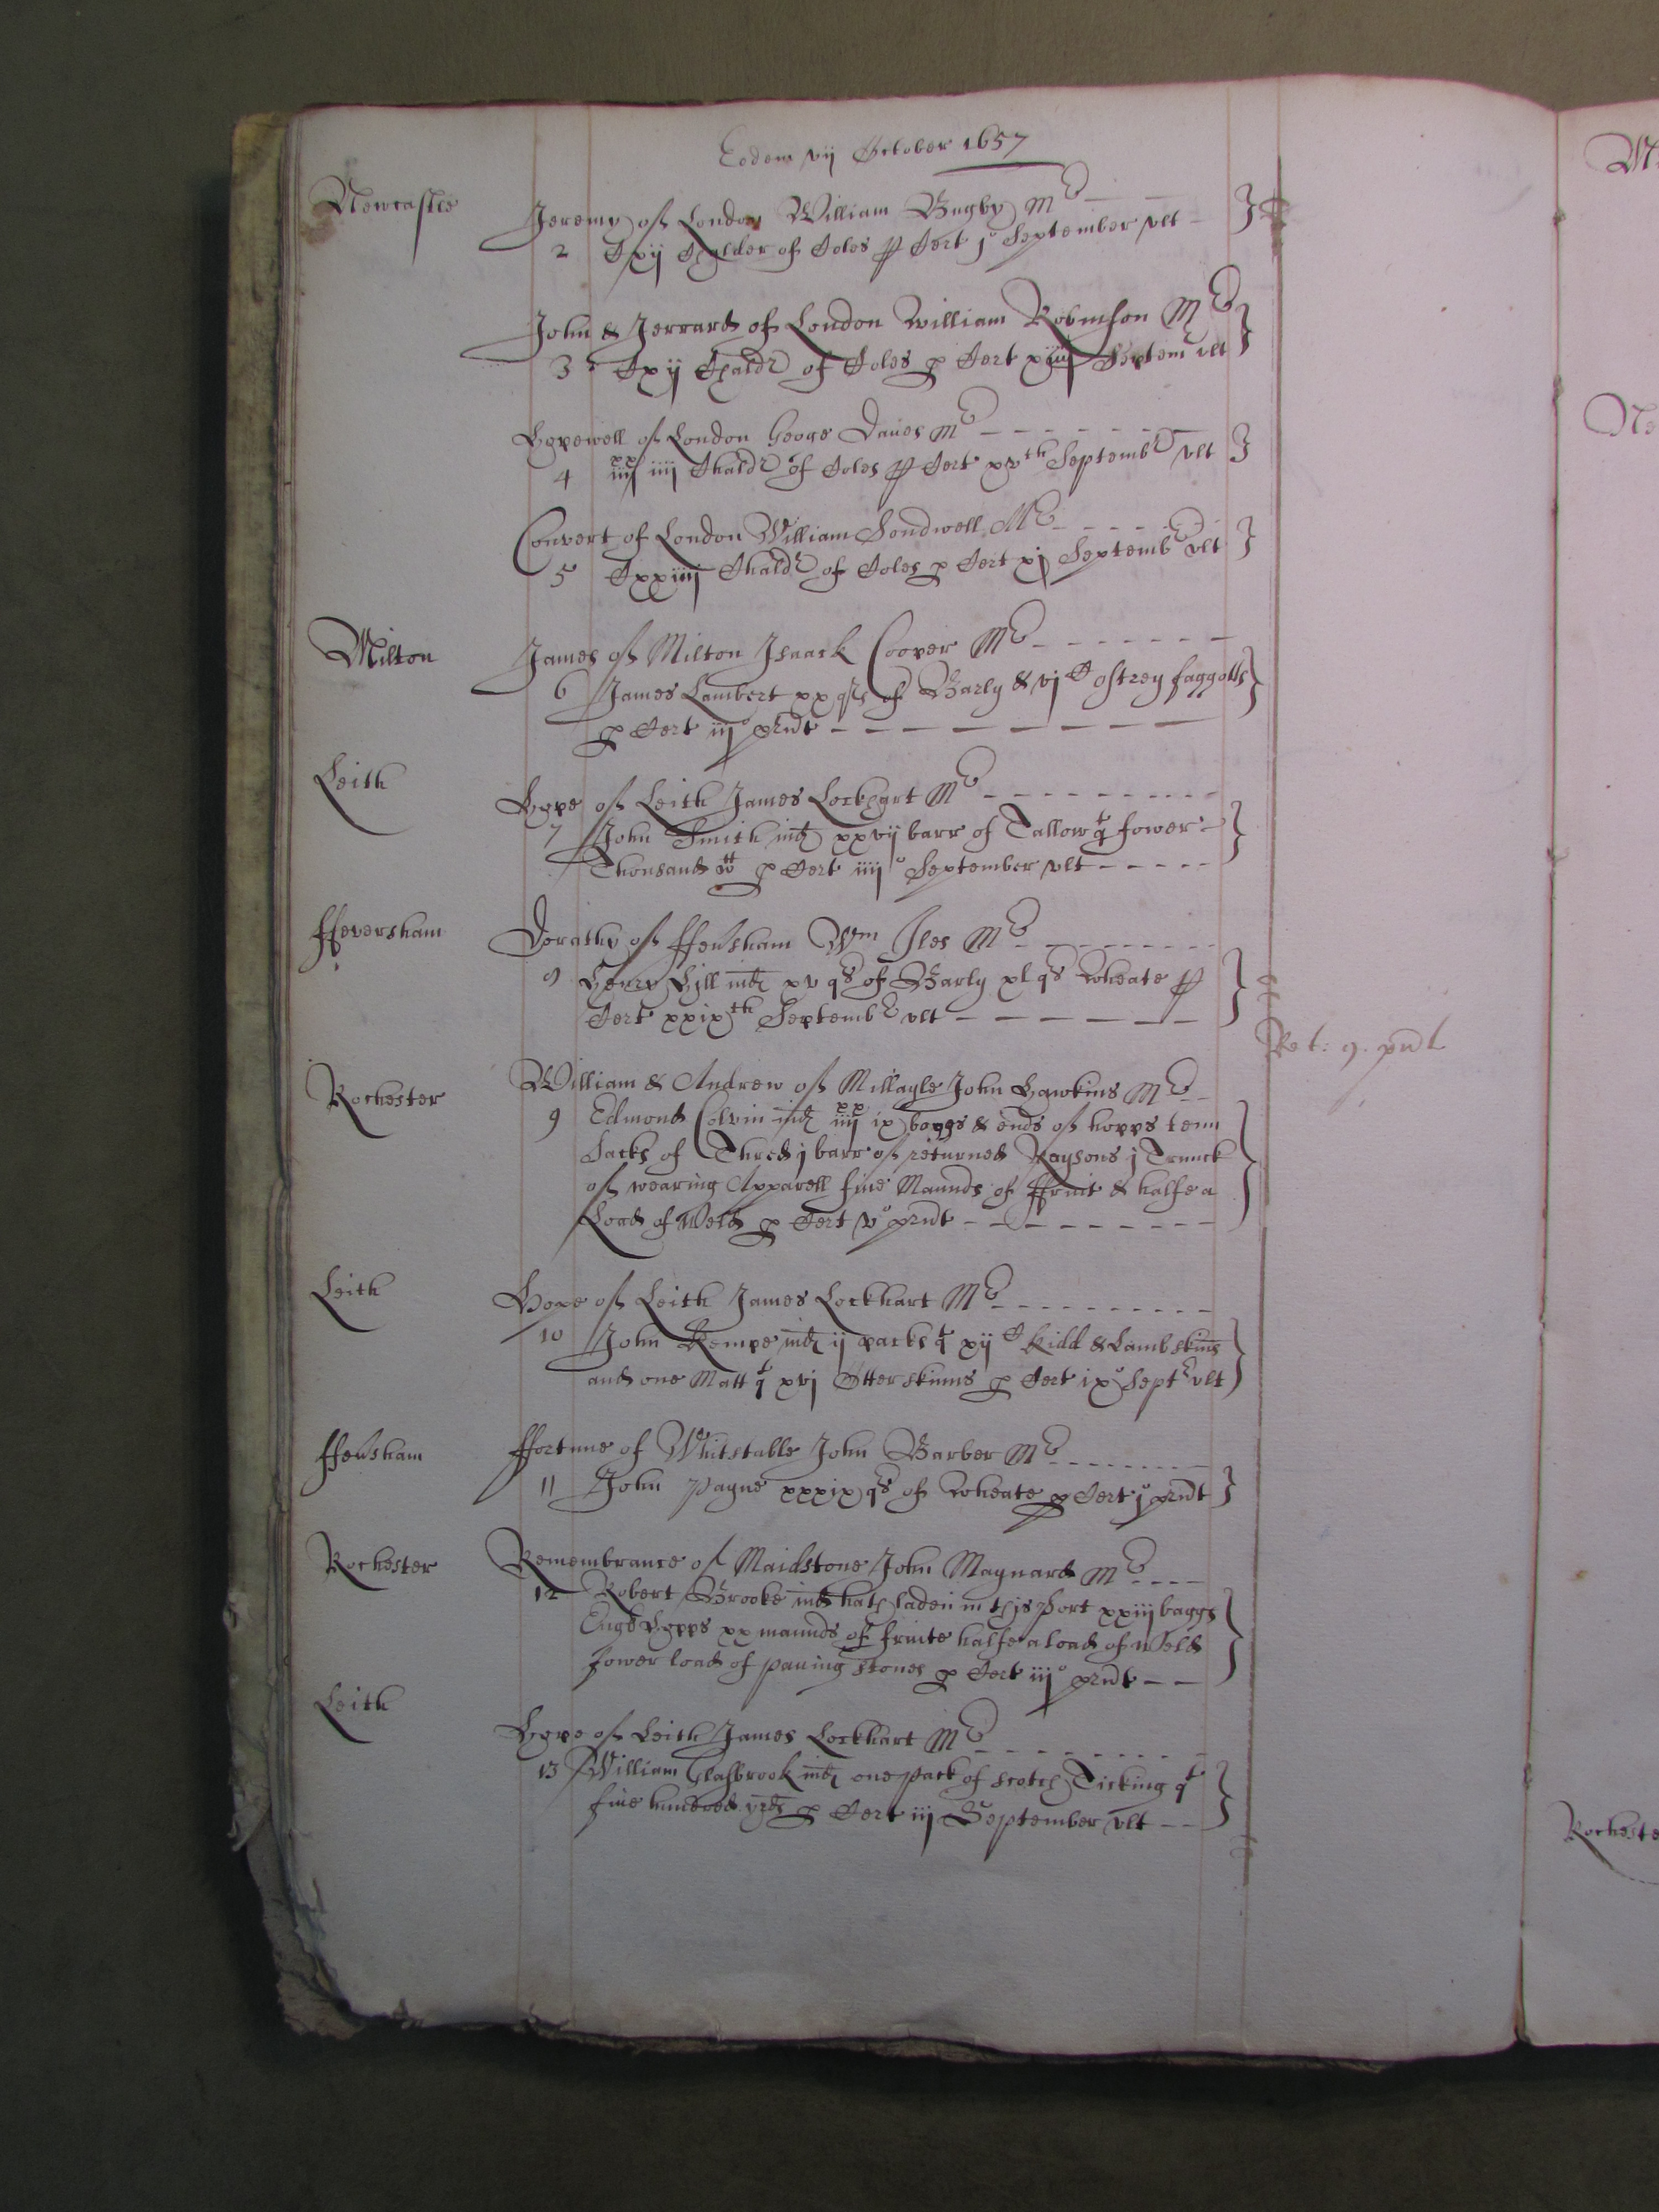 Eodem vij October 1657
Newcastle
Jeremy of London William Bugby Mr
2 Cxij Chalder of Coles p Cert jo September vlt
John & Jerrard of London William Robinson Mr
3 Cxij Chaldr of Coles p Cert xiiij Septemr vlt
Hopewell of London Geoge Daues Mr
4 iiij xx iiij Chaldr of Coles p Cert xvth Septembr vlt
Convert of London William Sendwell Mr
5 Cxxiiij Chaldr of Coles p Cert xj Septembr vlt
Milton
James of Milton Isaack Cooper Mr
6 James Lambert xx qrs of Barly & vj C ostrey faggotts
p Cert iijo prnt
Leith
Hope of Leith James Lockhart Mr
7 John Smith ind xxvij barr of Tallow qt fower
Thousand wtt p Cert iiijo September vlt
ffeversham
Dorathy of ffeusham Wm Iles Mr
Henry Hill ind xv qrs of Barly xl qrs Wheate p
Cert xxixth Septembr vlt
Ret: 9. prnt
Rochester
William & Andrew of Millagle John Hawkins Mr
9 Edmond Colvin ind iiij xx ix baggs & ends of hopps tenn
Sacks of Thred j barr of returned Raysons j Trunck
of wearing Apparell fiue Maunds of ffruit & halfe a
Load of Weld p Cert vo prnt
Leith
Hope of Leith James Lockhart Mr
10 John Kempe ind ij packs qt xij C Kidd & Lamb skins
and one Matt qt xvj Otter skinns p Cert ixo Septr vlt
ffeusham
ffortune of Whitstable John Barber Mr
11 John Payne xxxix qrs of Wheate p Cert jo prnt
Rochester
Remembrance of Maidstone John Maynard Mr
12 Robert Brooke ind hath laden in this Port xxiij baggs
Engs Hopps xx maunds of fruite halfe a load of Weld
fower load of pauing stones p Cert iijo prnt
Leith
Hope of Leith James Lockhart Mr
13 William Glasbrook ind one pack of scotch Ticking qt
fiue hundred yrds p Cert iij September vlt
Rocheste